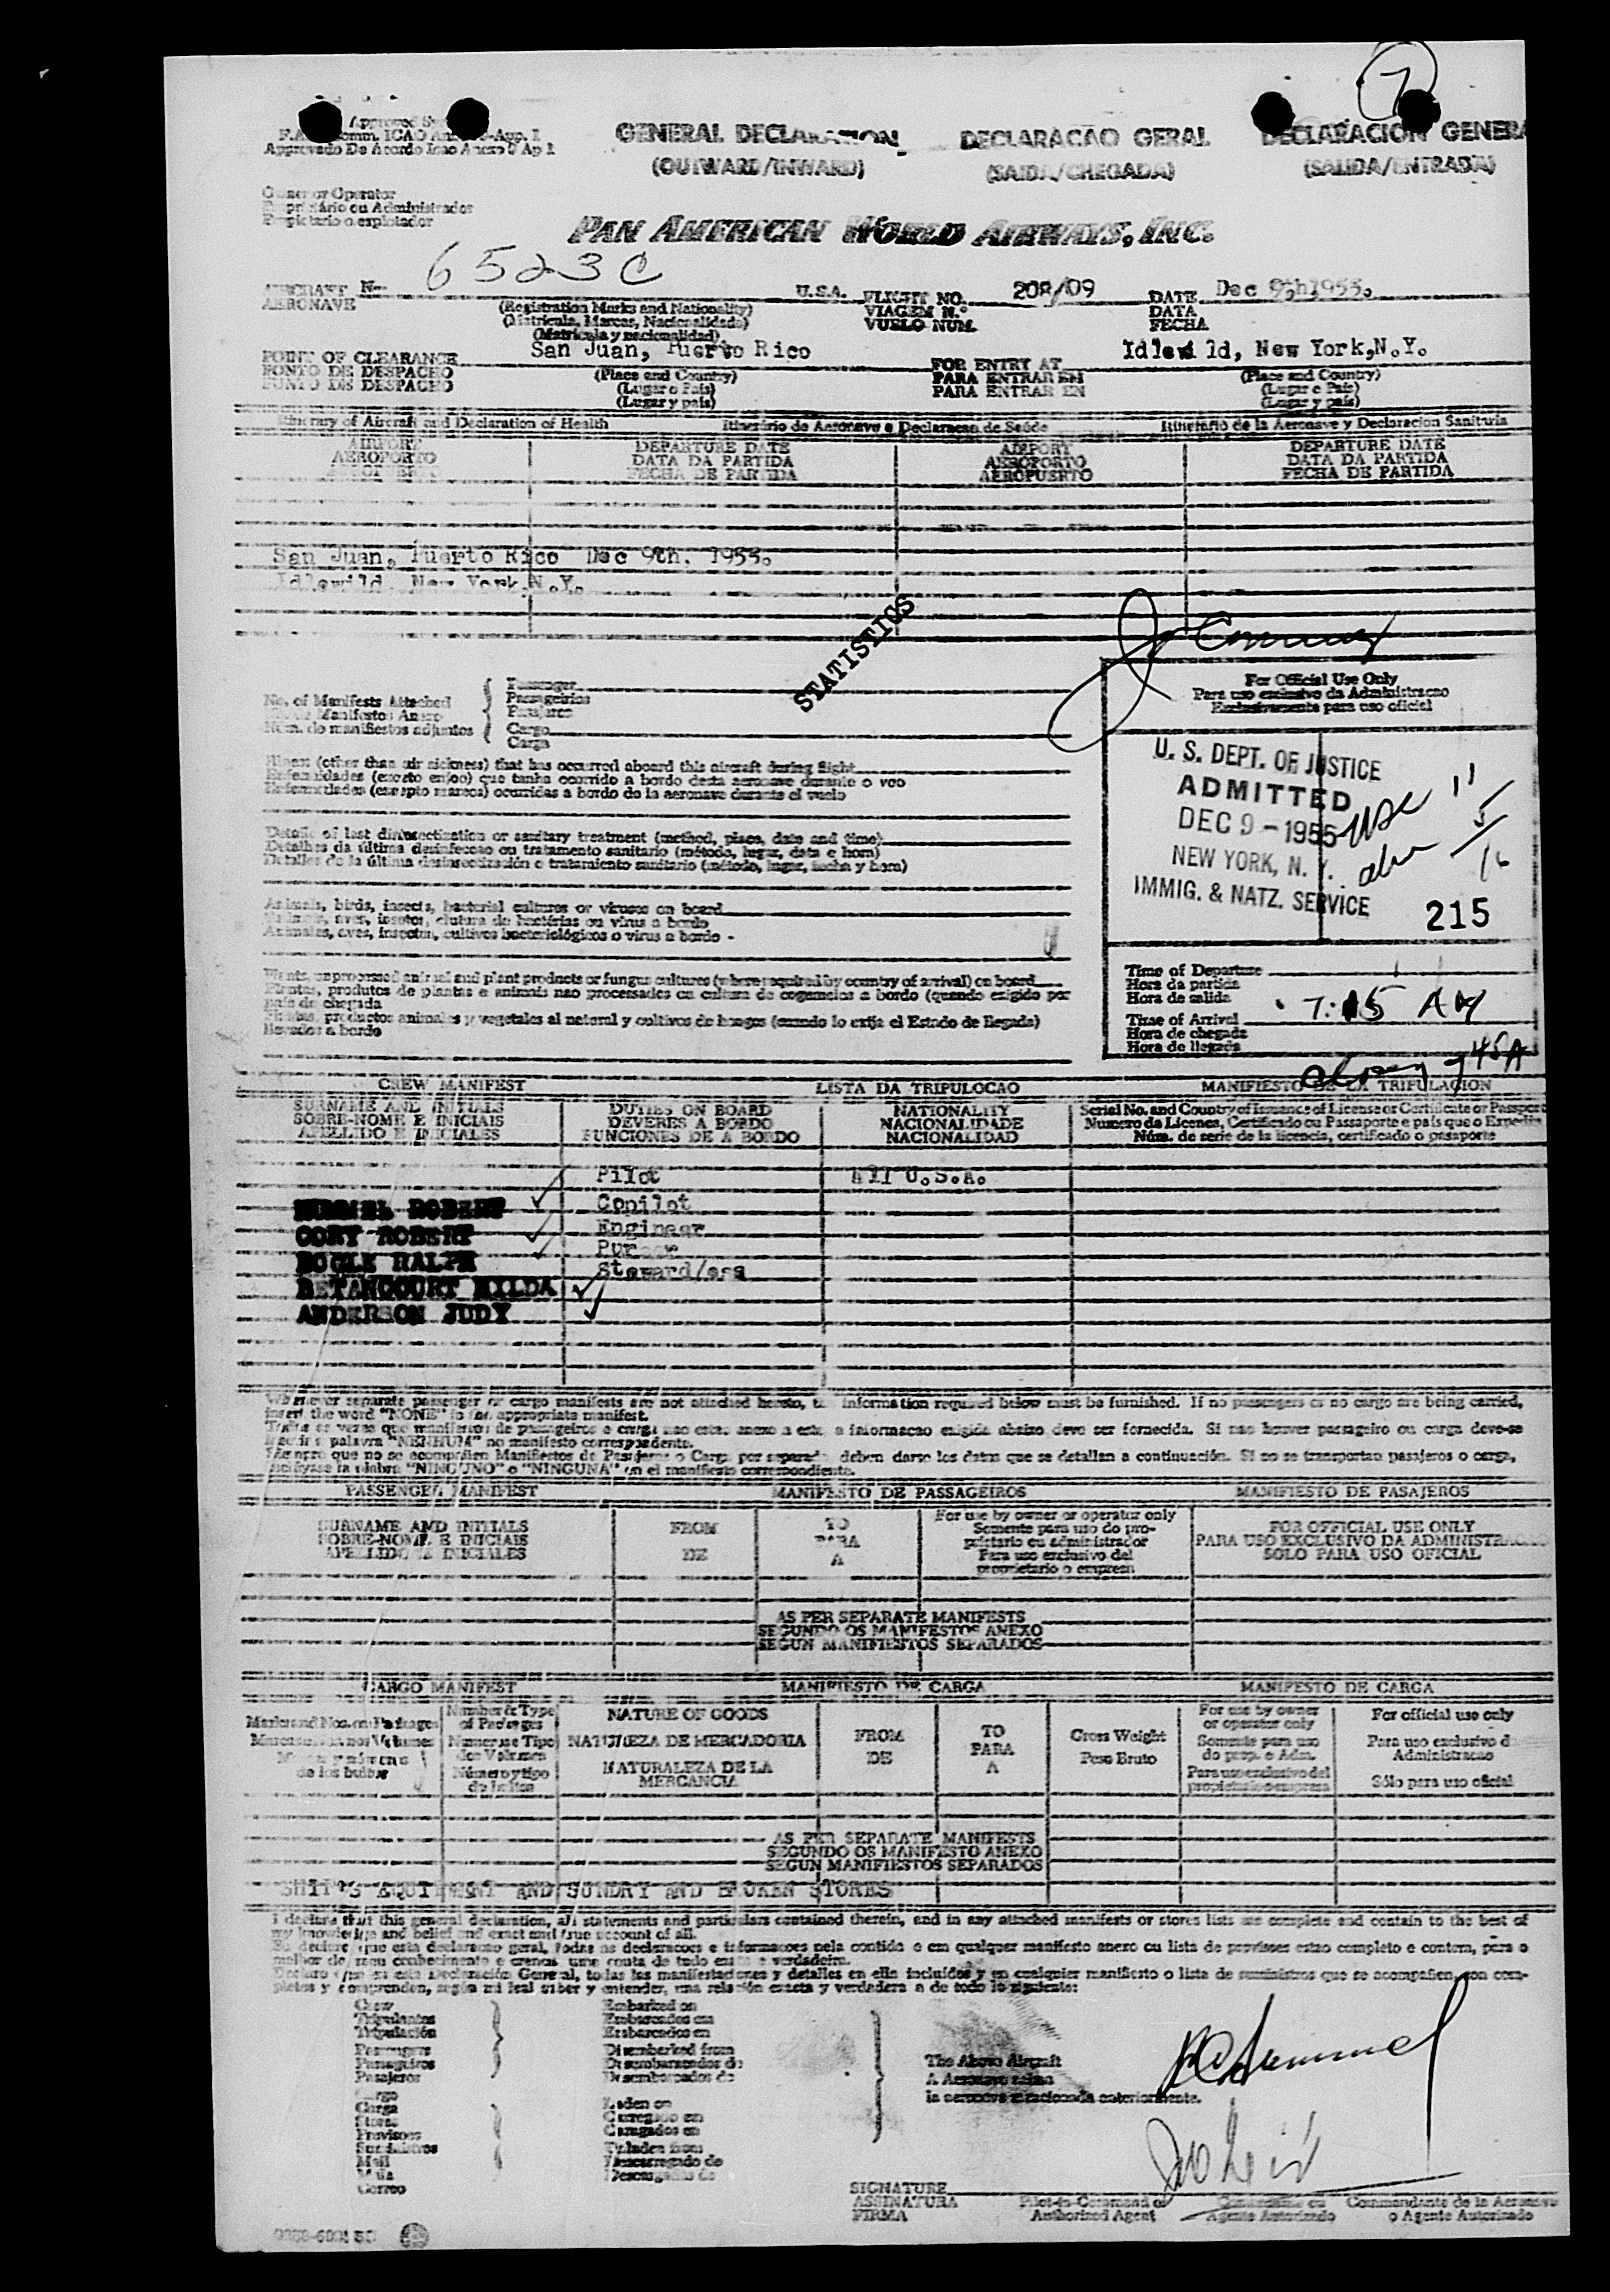 7
Approved
F.A. Comm. ICAO Annex 9-App. I
Approvado De Acordo Icao Anexo 9 Ap I
GENERAL DECLARATION
(OUTWARD/INWARD)
DECLARACAO GERAL
(SAIDA/CHEGADA)
DECLARACION GENERA
(SALIDA/ENTRADA)
Owner or Operator
Proprietário ou Administrador
Propietario o explotador
PAN AMERICAN WORLD AIRWAYS, INC.
AIRCRAFT N- 6523C U.S.A. FLIGHT NO. 208/09 DATE Dec 9th1955.
AERONAVE (Registration Marks and Nationality) VIAGEM N.º DATA
(Matricula, Marcas, Nacionalidade) VUELO NUM. FECHA
(Matricula y nacionalidad)
POINT OF CLEARANCE San Juan, Puerto Rico FOR ENTRY AT Idlewild, New York,N.Y.
PONTO DE DESPACHO (Place and Country) PARA ENTRAR EM (Place and Country)
PUNTO DE DESPACHO (Lugar o País) PARA ENTRAR EN (Lugar o País)
(Lugar y país) (Lugar y país)
Itinerary of Aircraft and Declaration of Health Itinerário de Aeronave e Declaracao de Saúde Itinerario de la Aeronave y Declaracion Sanitaria
AIRPORT DEPARTURE DATE AIRPORT DEPARTURE DATE
AEROPORTO DATA DA PARTIDA AEROPORTO DATA DA PARTIDA
AEROPUERTO FECHA DE PARTIDA AEROPUERTO FECHA DE PARTIDA
San Juan, Puerto Rico Dec 9th, 1955.
Idlewild, New York,N.Y.
STATISTICS
No. of Manifests Attached
Manifestos Anexo
Núm. de manifiestos adjuntos
Passenger
Passageirios
Pasajeros
Cargo
Carga
For Official Use Only
Para uso exclusivo da Administracao
Exclusivamente para uso oficial
Illness (other than air sickness) that has occurred aboard this aircraft during flight
Enfermidades (exceto enjoo) que tanha ocorrido a bordo desta aeronave durante o voo
Enfermedades (excepto mareos) ocurridas a bordo de la aeronave durante el vuelo
U. S. DEPT. OF JUSTICE
ADMITTED
DEC 9 - 1955
NEW YORK, N. Y.
IMMIG. & NATZ. SERVICE
USC 11
5
215
Details of last disinsectization or sanitary treatment (method, place, date and time)
Detalhes da última desinfeccao ou tratamento sanitario (método, lugar, data e hora)
Detalles de la última desinsectización o tratamiento sanitario (método, lugar, fecha y hora)
Animals, birds, insects, bacterial cultures or viruses on board
Animais, aves, insetos, clutura de bactérias ou virus a bordo
Animales, aves, insectos, cultivos bacteriológicos o virus a bordo -
Plants, unprocessed animal and plant products or fungus cultures (where required by country of arrival) on board
Plantas, produtos de plantas e animais nao processados ou cultura de cogumelos a bordo (quando exigido por
país de chegada
Plantas, productos animales y vegetales al natural y cultivos de hongos (cuando lo exija el Estado de llegada)
llevados a bordo
Time of Departure
Hora da partida
Hora de salida
Time of Arrival 7:15 AM
Hora de chegada
Hora de llegada
745A
CREW MANIFEST LISTA DA TRIPULOCAO MANIFIESTO DE LA TRIPULACION
SURNAME AND INITIALS DUTIES ON BOARD NATIONALITY Serial No. and Country of Issuance of License or Certificate or Passport
SOBRE-NOME E INICIAIS DEVERES A BORDO NACIONALIDADE Numero da Licenca, Certificado ou Passaporte e país que o Expediu
APELLIDO E INICIALES FUNCIONES DE A BORDO NACIONALIDAD Núm. de serie de la licencia, certificado o pasaporte
Pilot All U.S.A.
HUMMEL ROBERT Copilot
CORY ROBERT Engineer
BOGLE RALPH Purser
BETANCOURT HILDA Steward/ess
ANDERSON JUDY
Whenever separate passenger or cargo manifests are not attached hereto, the information required below must be furnished. If no passengers or no cargo are being carried,
insert the word "NONE" in the appropriate manifest.
Todas as vezes que manifestos de passageiros e carga nao estao anexo a este, a informacao exigida abaixo deve ser fornecida. Si nao houver passageiro ou carga deve-se
inserir a palavra "NENHUM" no manifesto correspondente.
Siempre que no se acompañen Manifiestos de Pasajeros o Carga por separado deben darse los datos que se detallan a continuación. Si no se transportan pasajeros o carga,
inclúyase la palabra "NINGUNO" o "NINGUNA" en el manifiesto correspondiente.
PASSENGER MANIFEST MANIFESTO DE PASSAGEIROS MANIFIESTO DE PASAJEROS
SURNAME AND INITIALS FROM TO For use by owner or operator only FOR OFFICIAL USE ONLY
SOBRE-NOME E INICIAIS PARA Somente para uso do pro- PARA USO EXCLUSIVO DA ADMINISTRACAO
APELLIDO E INICIALES DE A prietario ou administrador SOLO PARA USO OFICIAL
Para uso exclusivo del
propietario o empresa
AS PER SEPARATE MANIFESTS
SEGUNDO OS MANIFESTOS ANEXO
SEGUN MANIFIESTOS SEPARADOS
CARGO MANIFEST MANIFIESTO DE CARGA MANIFESTO DE CARGA
Marks and Nos. on Packages Number & Type of Packages NATURE OF GOODS FROM TO Gross Weight For use by owner or operator only For official use only
Numer se Tipo dos Volumes NATUREZA DE MERCADORIA DE PARA Peso Bruto Somente para uso do prop. o Adm. Para uso exclusivo d Administracao
de los bultos Número y tipo de bultos NATURALEZA DE LA MERCANCIA A Para uso exclusivo del propietario o empresa Sólo para uso oficial
AS PER SEPARATE MANIFESTS
SEGUNDO OS MANIFESTO ANEXO
SEGUN MANIFIESTOS SEPARADOS
SHIP'S EQUIPMENT AND SUNDRY AND BROKEN STORES
I declare that this general declaration, all statements and particulars contained therein, and in any attached manifests or stores lists are complete and contain to the best of
my knowledge and belief and exact and true account of all.
Eu declaro que esta declaracao geral, todas as declaracoes e informacoes nela contida e em qualquer manifesto anexo ou lista de provisoes estao completo e contem, para o
melhor de meu conhecimento e crenca uma conta de tudo exata e verdadeira.
Declaro que en esta Declaración General, todas las manifestaciones y detalles en ella incluídos y en cualquier manifiesto o lista de suministros que se acompañen, son com-
pletos y comprenden, según mi leal saber y entender, una relación exacta y verdadera a de todo lo siguiente:
Crew
Tripulantes
Tripulación
Passengers
Passageiros
Pasajeros
Cargo
Carga
Stores
Provisoes
Suministros
Mail
Mala
Correo
Embarked on
Embarcados em
Embarcados en
Disembarked from
Desembarcados de
Desembarcados de
Laden on
Carregado em
Cargados en
Unladen from
Descarregado de
Descargados de
The Above Aircraft
A Aeronave acima
la aeronave mencionada anteriormente.
SIGNATURE
ASSINATURA Pilot-in-Command or Comandante ou Commandante de la Aeronave
FIRMA Authorized Agent Agente Autorizado o Agente Autorizado